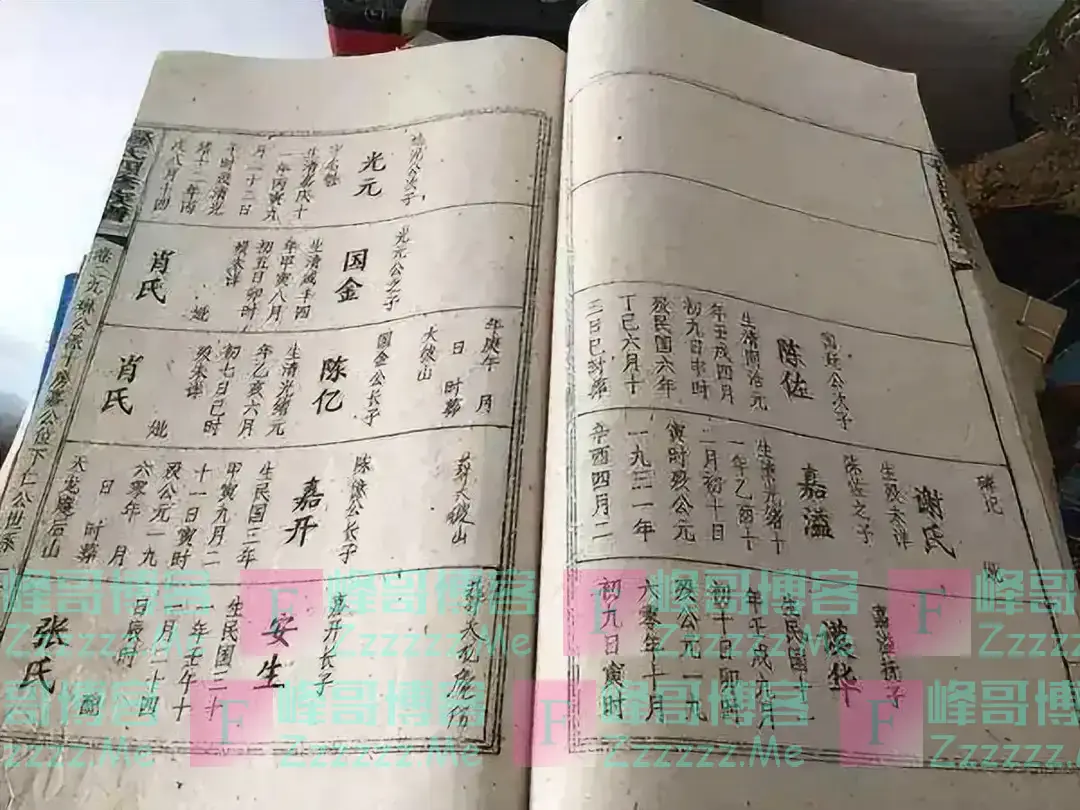 陈佐
生清同治元
年壬戌四月
初九日申时
殁民国六年
丁巳六月十
三日巳时葬
碑记
谢氏
生殁未详
陈佐之子
嘉溢
生清光绪十
一年乙酉十
二月初十日
寅时殁公元
一九三一年
辛酉四月二
嘉溢抚子
年壬戌九月
初十日卯时
殁公元一九
六零年十月
初九日寅时
公次子
光元
一年丙寅九
月二十二日
戊八月十四
光元公之子
国金
生清咸丰四
年甲寅八月
初五日卯时
殁未详
妣
肖氏
年庚午 月
日 时葬
大坡山
国金公长子
陈亿
生清光绪元
年乙亥六月
初七日巳时
殁未详
妣
肖氏
葬大坡山
陈亿公长子
嘉开
生民国三年
甲寅九月二
十一日寅时
殁公元一九
六零年 月
日 时葬
大龙庵石山
嘉开长子
安生
生民国三十
一年壬午十
一月二十四
日辰时
配
张氏
峰哥博客
Zzzzzz.Me
F
峰哥博客
Zzzzzz.Me
F
峰哥博客
Zzzzzz.Me
F
峰哥博客
Zzzzzz.Me
F
峰哥博客
Zzzzzz.Me
F
峰哥博客
Zzzzzz.Me
F
峰哥博客
Zzzzzz.Me